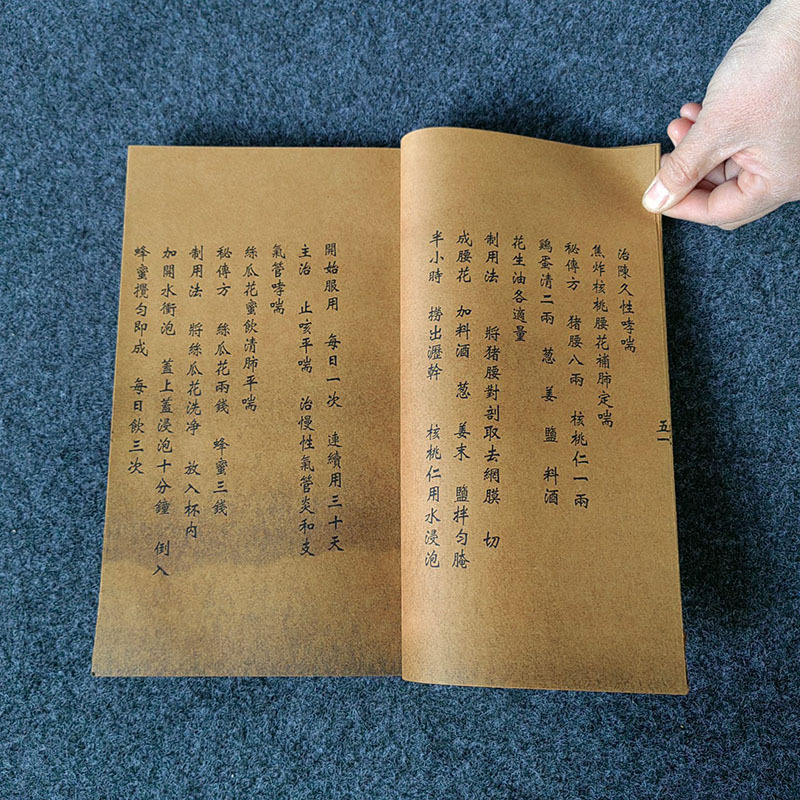 治陳久性哮喘
焦炸核桃腰花補肺定喘
秘傳方 猪腰八兩 核桃仁一兩
鷄蛋清二兩 葱 姜 鹽 料酒
花生油各適量
制用法 將猪腰對剖取去網膜 切
成腰花 加料酒 葱 姜末 鹽拌勻腌
半小時 撈出瀝幹 核桃仁用水浸泡
五一
開始服用 每日一次 連續用三十天
主治 止咳平喘 治慢性氣管炎和支
氣管哮喘
絲瓜花蜜飲清肺平喘
秘傳方 絲瓜花兩錢 蜂蜜三錢
制用法 將絲瓜花洗净 放入杯内
加開水衝泡 蓋上蓋浸泡十分鐘 倒入
蜂蜜攪勻即成 每日飲三次